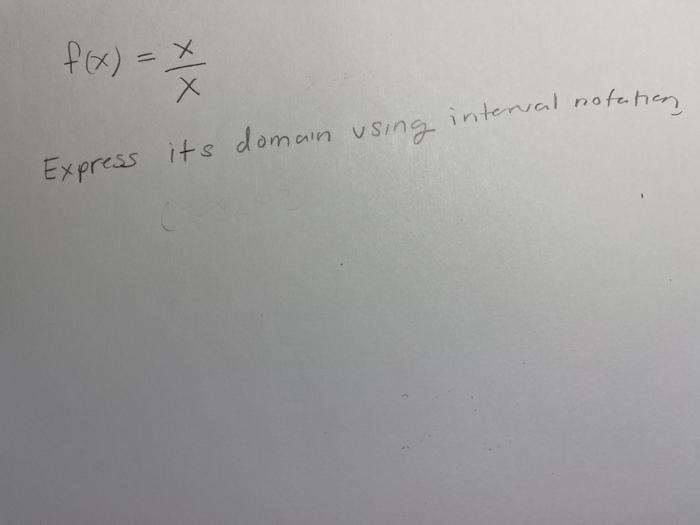 f(x) = x/x
Express its domain using interval notation